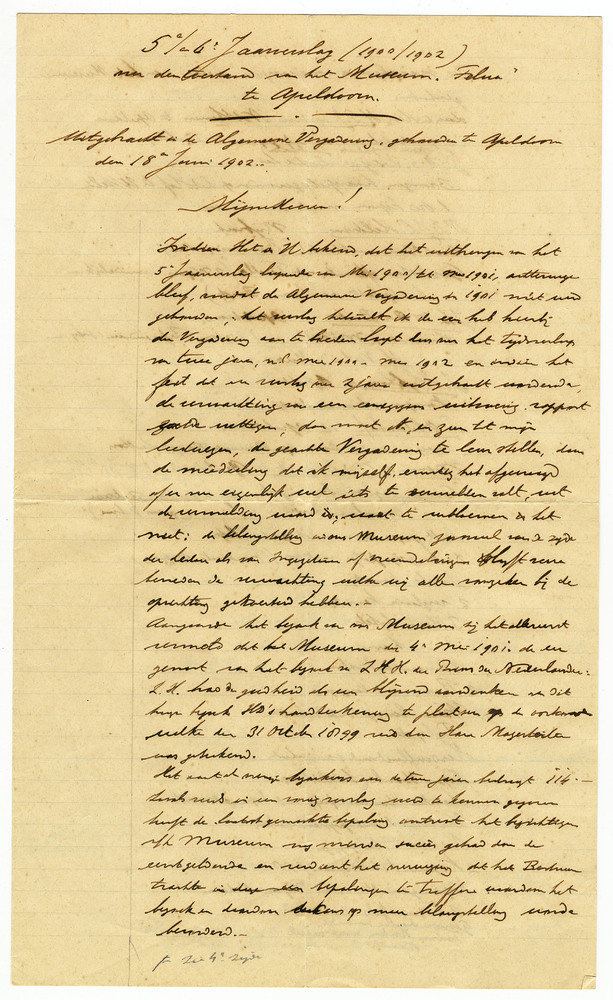 5e/- 6e Jaarverslag (1900/1902)
van den toestand van het Museum "Felua"
te Apeldoorn.
Uitgebracht in de Algemeene Vergadering, gehouden te Apeldoorn
den 18en Juni 1902.
Mijne Heeren!
Indien Het is U bekend, dat het uitbrengen van het
5e Jaarverslag loopende van Mei 1900/tot mei 1901, achterwege
bleef, omdat de Algemeene Vergadering in 1901 niet werd
gehouden; het verslag hetwelk ik de eer heb hierbij
der Vergadering aan te bieden loopt dus over het tijdsverloop
van twee jaren, n.l. mei 1900 - mei 1902 en indien het
feit dat een verslag over 2 jaren uitgebracht wordende,
de verwachting van een eenigszins uitvoerig rapport
zoude wettigen, dan moet ik, en zeer tot mijn
leedwezen, de geachte Vergadering te leur stellen, door
de mededeeling dat ik mijzelf ernstig heb afgevraagd
of er nu eigenlijk wel iets te vermelden valt, wat
de vermelding waard is; want te verbloemen is het
niet: de belangstelling in ons Museum zoowel van de zijde
der leden als van Ingezetenen of vreemdelingen blijft verre
beneden de verwachting welke wij allen omtrent bij de
oprichting gekoesterd hebben. -
Aangaande het bezoek van ons Museum zij het allereerst
vermeld dat het Museum den 4en Mei 1901 de eer
genoot van het bezoek van Z.K.H. den Prins der Nederlanden:
Z.H. had de goedheid als een blijvend aandenken van dit
hooge bezoek HD's handteekening te plaatsen op de oorkonde
welke den 31 October 1899 werd door Hare Majesteiten
was geteekend.
Het aantal overige bezoekers over de twee jaren bedraagt 114.-
zooals reeds in een vorig verslag werd te kennen gegeven
heeft de laatst gemaakte bepaling omtrent het bezichtigen
v/h Museum nog minder succès gehad dan de
eerstgeldende en verdient het overweging dat het Bestuur
trachte in deze een bepalingen te treffen waardoor het
bezoek en daardoor tevens op meer belangstelling worde
bevorderd. -
zie 4e zijde